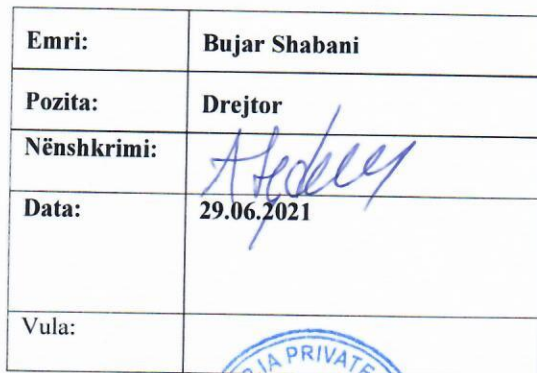 Emri: Bujar Shabani
Pozita: Drejtor
Nënshkrimi:
Data: 29.06.2021
Vula:
JA PRIVATE